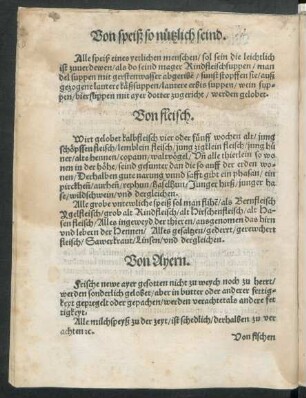 Von speiß so nützlich seind.
Alle speiß eines yerlichen menschen/ sol sein die leichtlich
ist zuuerdewen/ als do seind mager Rindfleischsuppen/ man
del suppen mit gerstenwasser abgeribẽ/ sunst stopffen sie/ auß
gezogene lautere käßsuppen/ lautere erbis suppen/ wein sup-
pen/ biersuppen mit ayer dotter zugericht/ werden gelobet.
Von fleisch.
Wirt gelobet kalbfleisch vier oder fünff wochen alt/ jung
schöpssenfleisch/ lemblein fleisch/ jung ziglein fleisch/ jung hü
ner/ alte hennen/ copaun/ walrvögel/ Vñ alle thierlein so wo
nen in der höhe/ seind gesunter dan die so auff der erden wo-
nen/ Derhalben gute narung vnnd safft gibt ein phasan/ ein
pirckhen/ aurhen/ rephun/ Haselhun/ Junger hirß/ junger ha
se/ wildschwein/ vnd dergleichen.
Alle grobe vnerwliche speiß sol man flihẽ/ als Bernfleisch
Ygelfleisch/ grob alt Rindfleisch/ alt Hirschenfleisch/ alt Ha-
sen fleisch/ Alles ingeweyd der thieren/ ausgenomen das hirn
vnd lebern der Hennen/ Alles gesaltzen/ gederrt/ gereuchert
fleisch/ Sawerkraut/ Linsen/ vnd dergleichen.
Von Ayern.
Frische newe ayer gesotten nicht zu weych noch zu hertt/
werden sonderlich gelobet/ aber in butter oder anderer fettig-
keyt gepregelt oder gepachen/ werden verachtet als andere fet
tigkeyt.
Alle milchspeyß zu der zeyt/ ist schedlich/ derhalben zu ver
achten ꝛc.
Von fischen